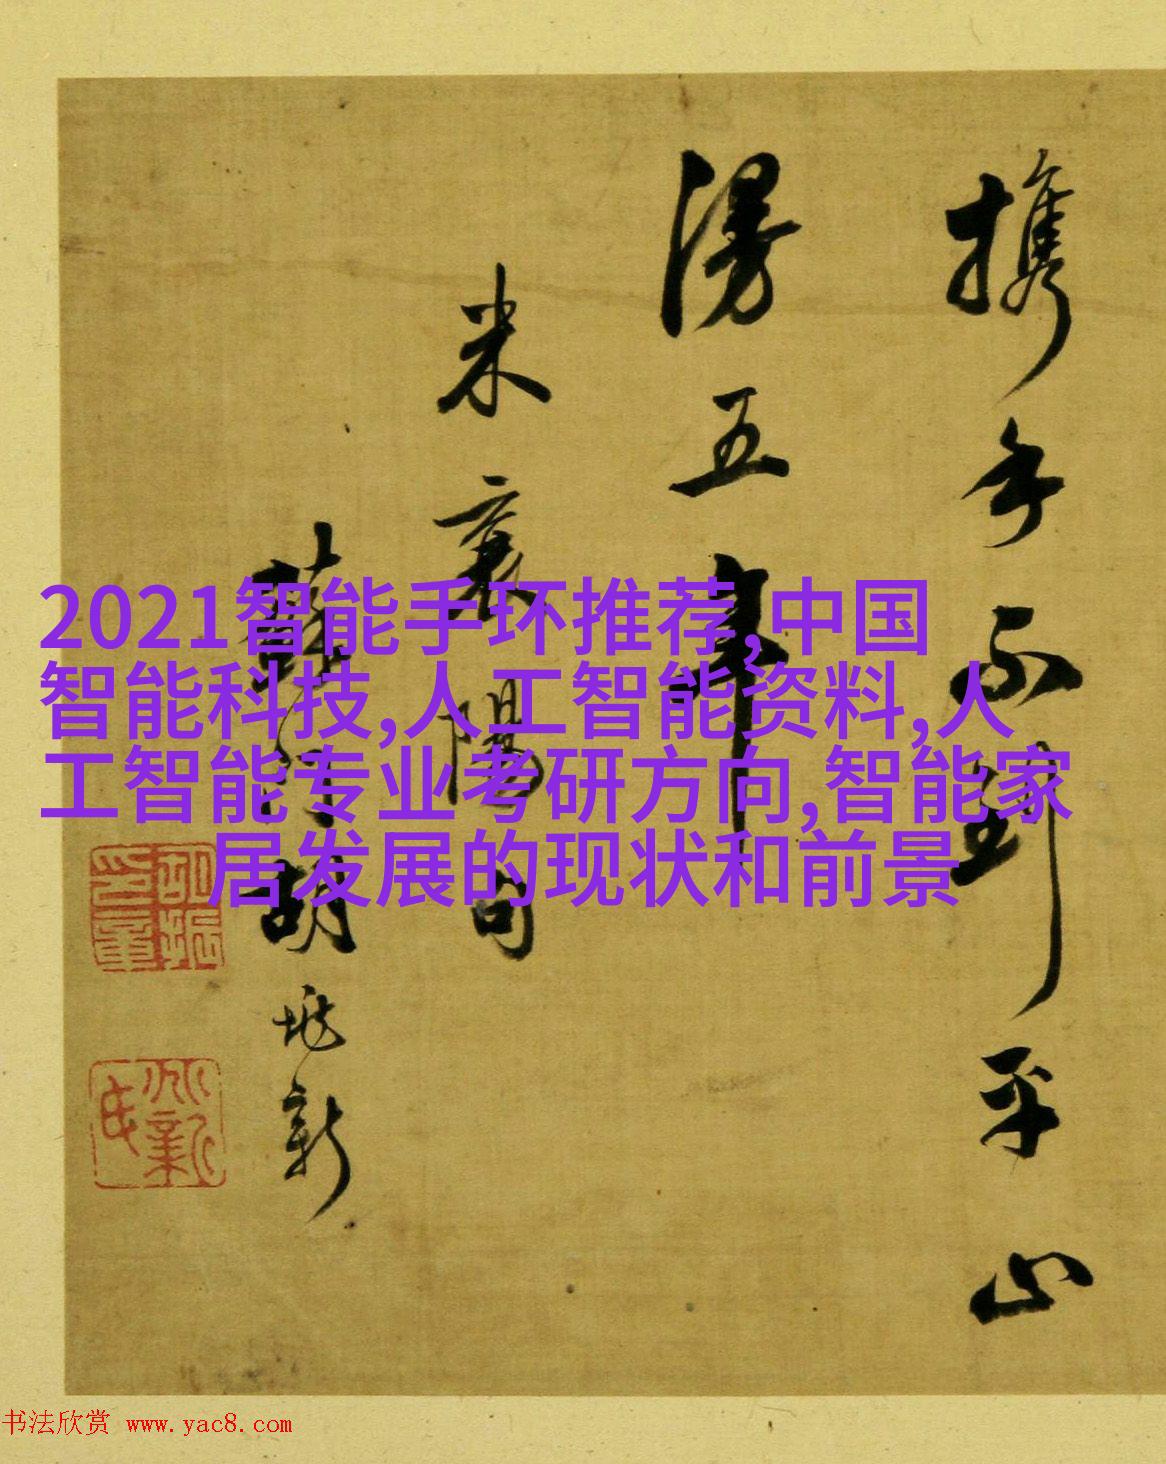 携手不到平山
漫五年
米襄陽句
蘇 胡 新
2021智能手环推荐,中国
智能科技,人工智能资料,人
工智能专业考研方向,智能家
居发展的现状和前景
书法欣赏 www.yac8.com